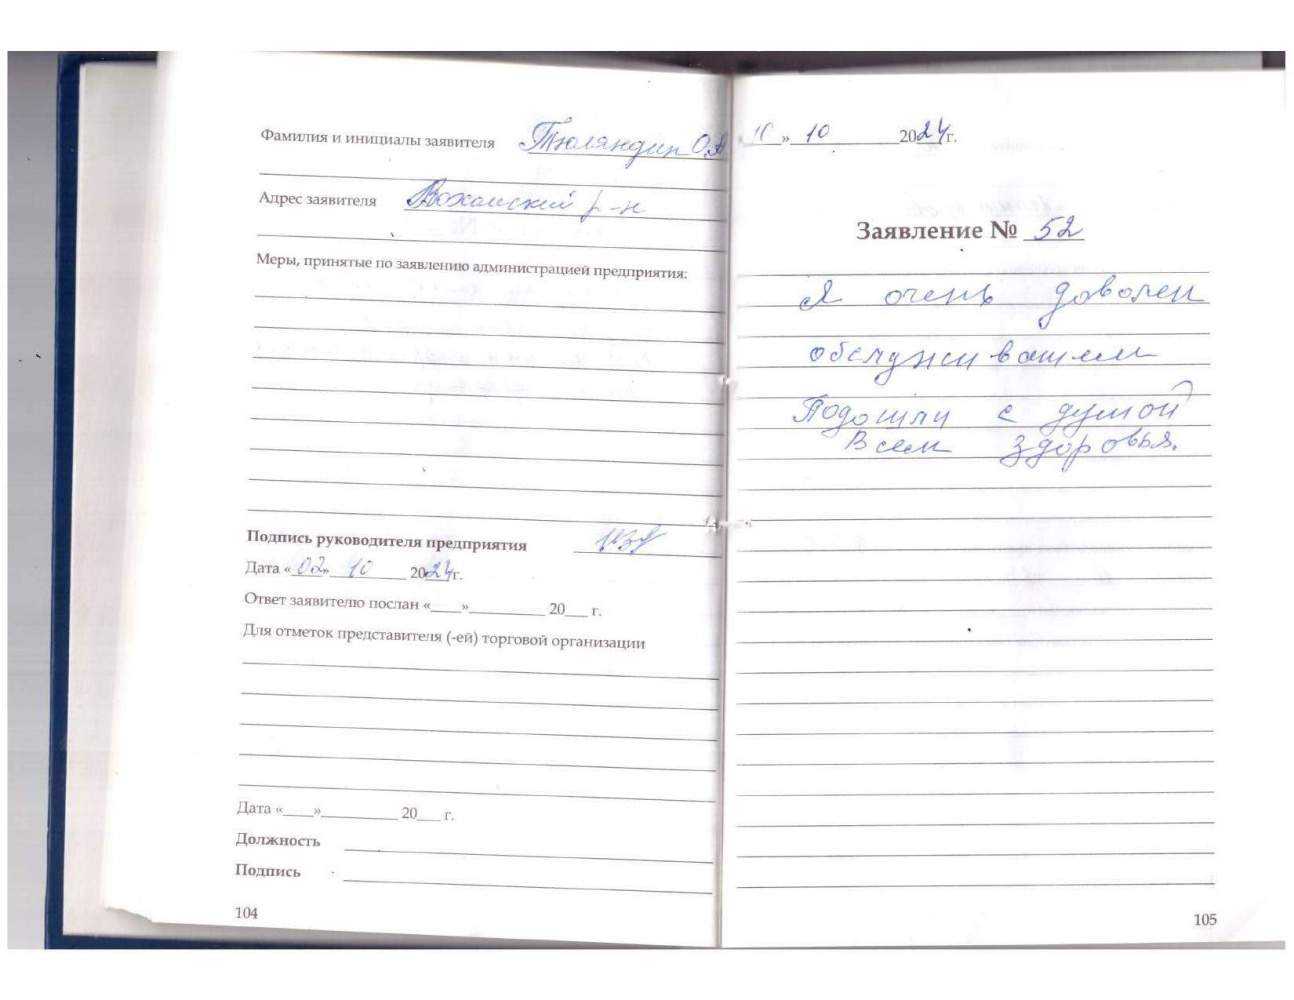 Фамилия и инициалы заявителя Тюляндин О.А
Адрес заявителя Вохомский р-н
Меры, принятые по заявлению администрацией предприятия:
Подпись руководителя предприятия
Дата «02» 10 2024г.
Ответ заявителю послан «____»__________ 20___ г.
Для отметок представителя (-ей) торговой организации
Дата «____»__________ 20___ г.
Должность
Подпись
104
10 » 10 2024г.
Заявление № 52
Я очень доволен
обслуживанием
Подошли с душой
Всем здоровья.
105